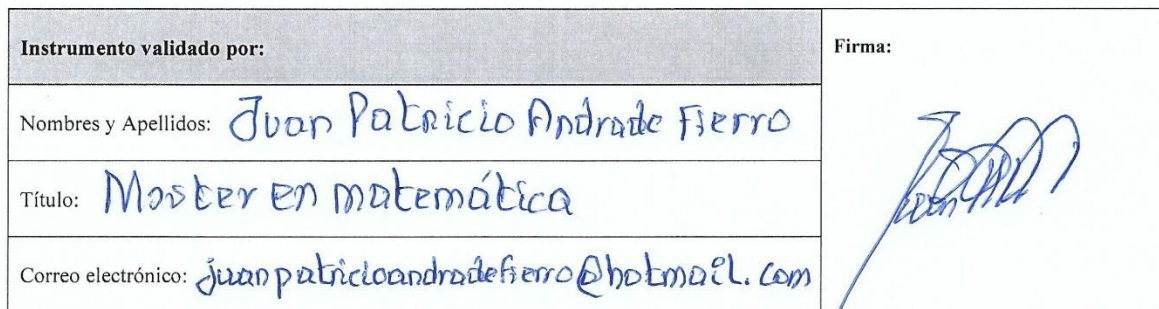 Instrumento validado por:
Firma:
Nombres y Apellidos: Juan Patricio Andrade Fierro
Título: Master en matemática
Correo electrónico: juanpatricioandradefierro@hotmail.com